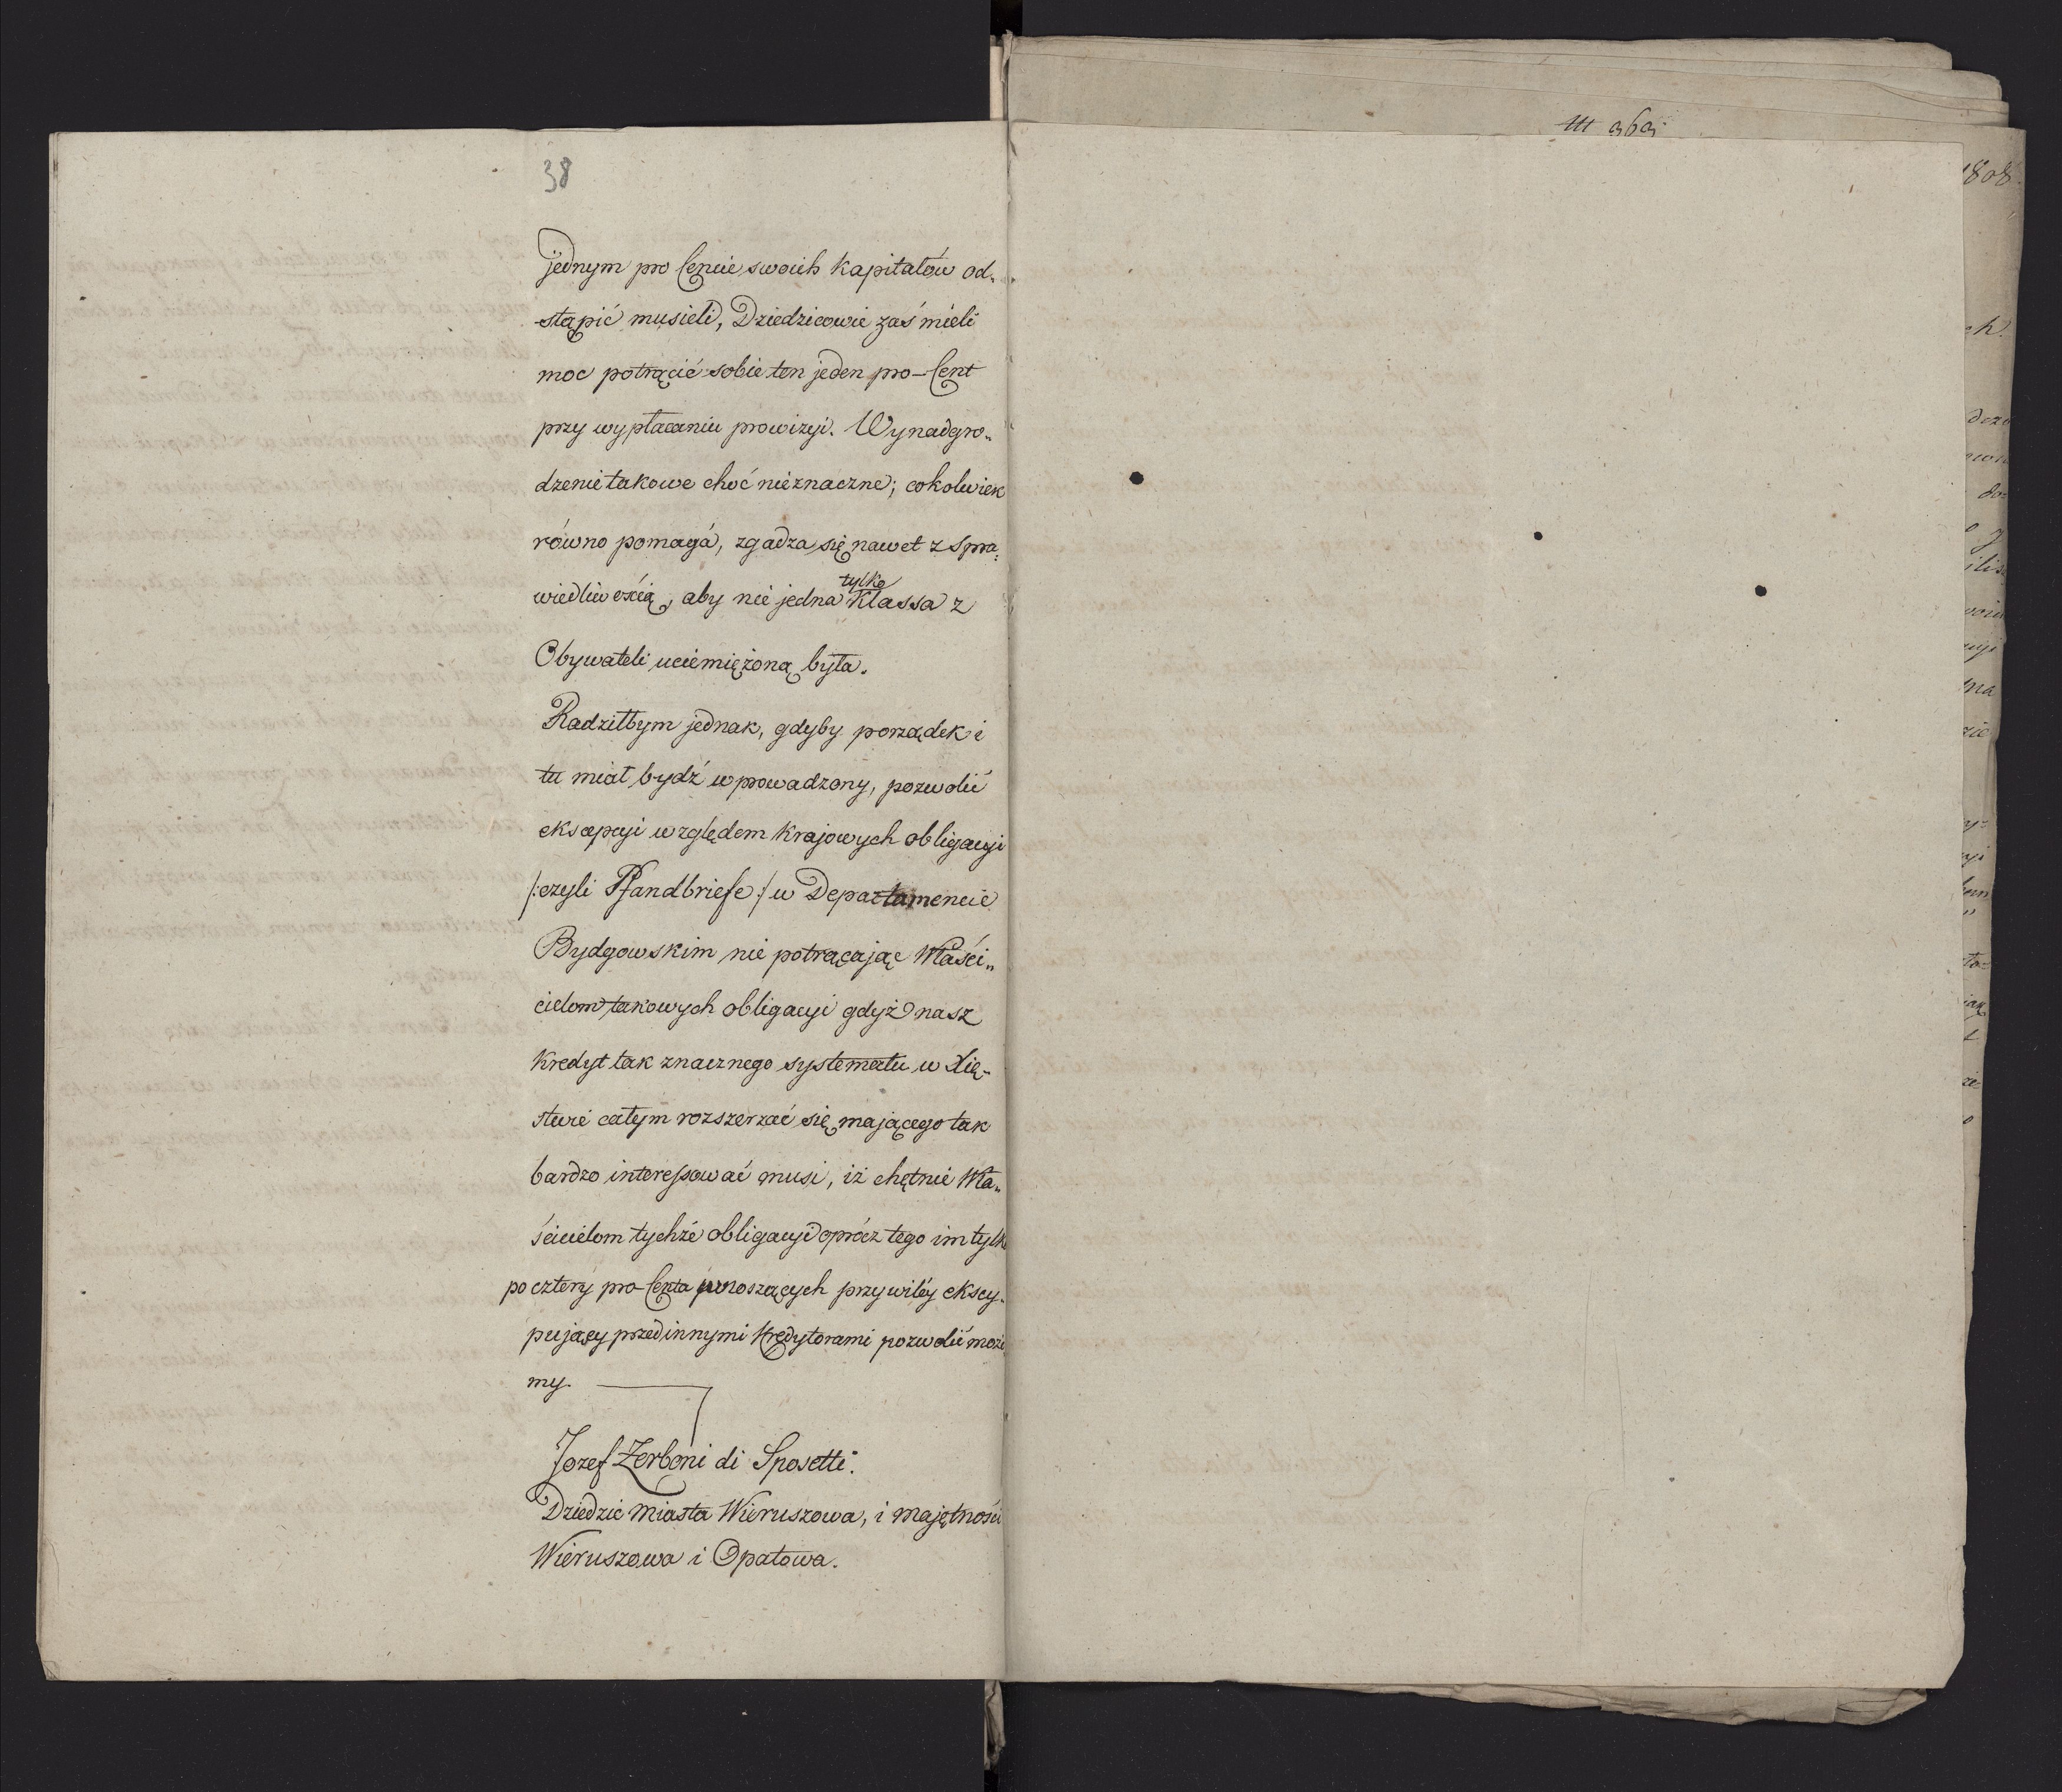 38
jednym pro Cencie swoich Kapitałów od„
stąpić musieli, Dziedzicowie zaś mieli
moc potrącić sobie ten jeden pro-Cent
przy wypłacaniu prowizyi. Wynadgro„
dzenie takowe choć nieznaczne; cokolwiek
równo pomagá, zgadza się nawet z spra„
wiedliwością, aby nie jedna tylko Klassa z
Obywateli uciemiężoną była.
Radziłbym jednak, gdyby porządek i
tu miał bydź wprowadzony, pozwolić
ekscepcyi względem Krajowych obligacyi
/:czyli Pfandbriefe:/ w Departamencie
Bydgowskim nie potrącając Właści„
cielom takowych obligacyi gdyż nasz
Kredyt tak znacznego systematu w Xię„
stwie całym rozszerzać się mającego tak
bardzo interessować musi, iż chętnie Wła„
ścicielom tychże obligacyi oprócz tego im tylko
po cztery pro-Centa wnoszących przywiléy ekscy„
pujący przed innymi Kredytorami pozwolić może
my.
Jozef Zerboni di Sposetti.
Dziedzic Miasta Wieruszowa, i Majętności
Wieruszowa i Opatowa.
1808.